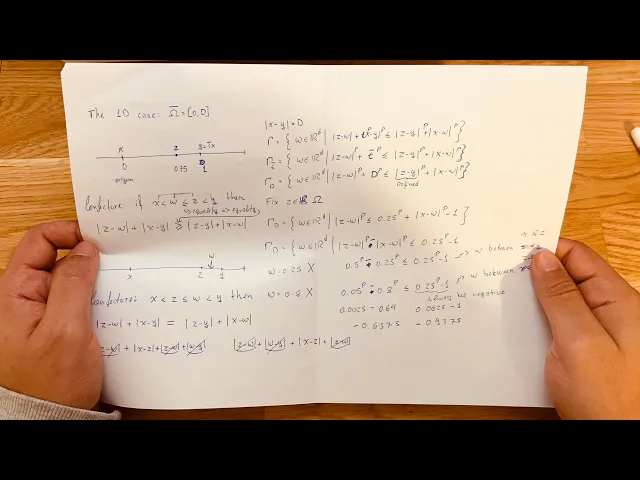 The 1D case: Ω̅ = [0,D]
x z y=Tx
0 0.75 1
origin
Conjecture if x < w ≤ z < y then
|z-w| + |x-y| ≥ |z-y| + |x-w|
w
x z y
Conjecture: x < z ≤ w < y then
|z-w| + |x-y| = |z-y| + |x-w|
|z-w| + |x-z| + |z-w| + |w-y| |z-w| + |w-y| + |x-z| + |z-w|
|x-y| = D
Γ = { w∈ℝᵈ | |z-w|ᵖ + |x-y|ᵖ ≤ |z-y|ᵖ + |x-w|ᵖ }
= { w∈ℝᵈ | |z-w|ᵖ + t̄ᵖ ≤ |z-y|ᵖ + |x-w|ᵖ }
Γ_D = { w∈ℝᵈ | |z-w|ᵖ + Dᵖ ≤ |z-y|ᵖ + |x-w|ᵖ }
Fix z∈ Ω
Γ_D = { w∈ℝᵈ | |z-w|ᵖ ≤ 0.25ᵖ + |x-w|ᵖ - 1 }
Γ_D = { w∈ℝᵈ | |z-w|ᵖ - |x-w|ᵖ ≤ 0.25ᵖ - 1
w = 0.25 X 0.5ᵖ - 0.25ᵖ ≤ 0.25ᵖ - 1 w between
w = 0.8 X 0.05ᵖ - 0.8ᵖ ≤ 0.25ᵖ - 1 w between
always be negative
0.0025 - 0.64 0.0625 - 1
-0.6375 -0.9375